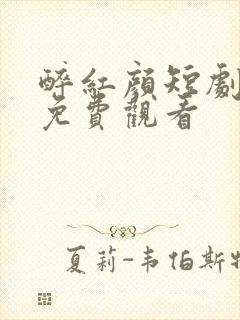 醉紅顏短劇
免費觀看
夏莉-韦伯斯特